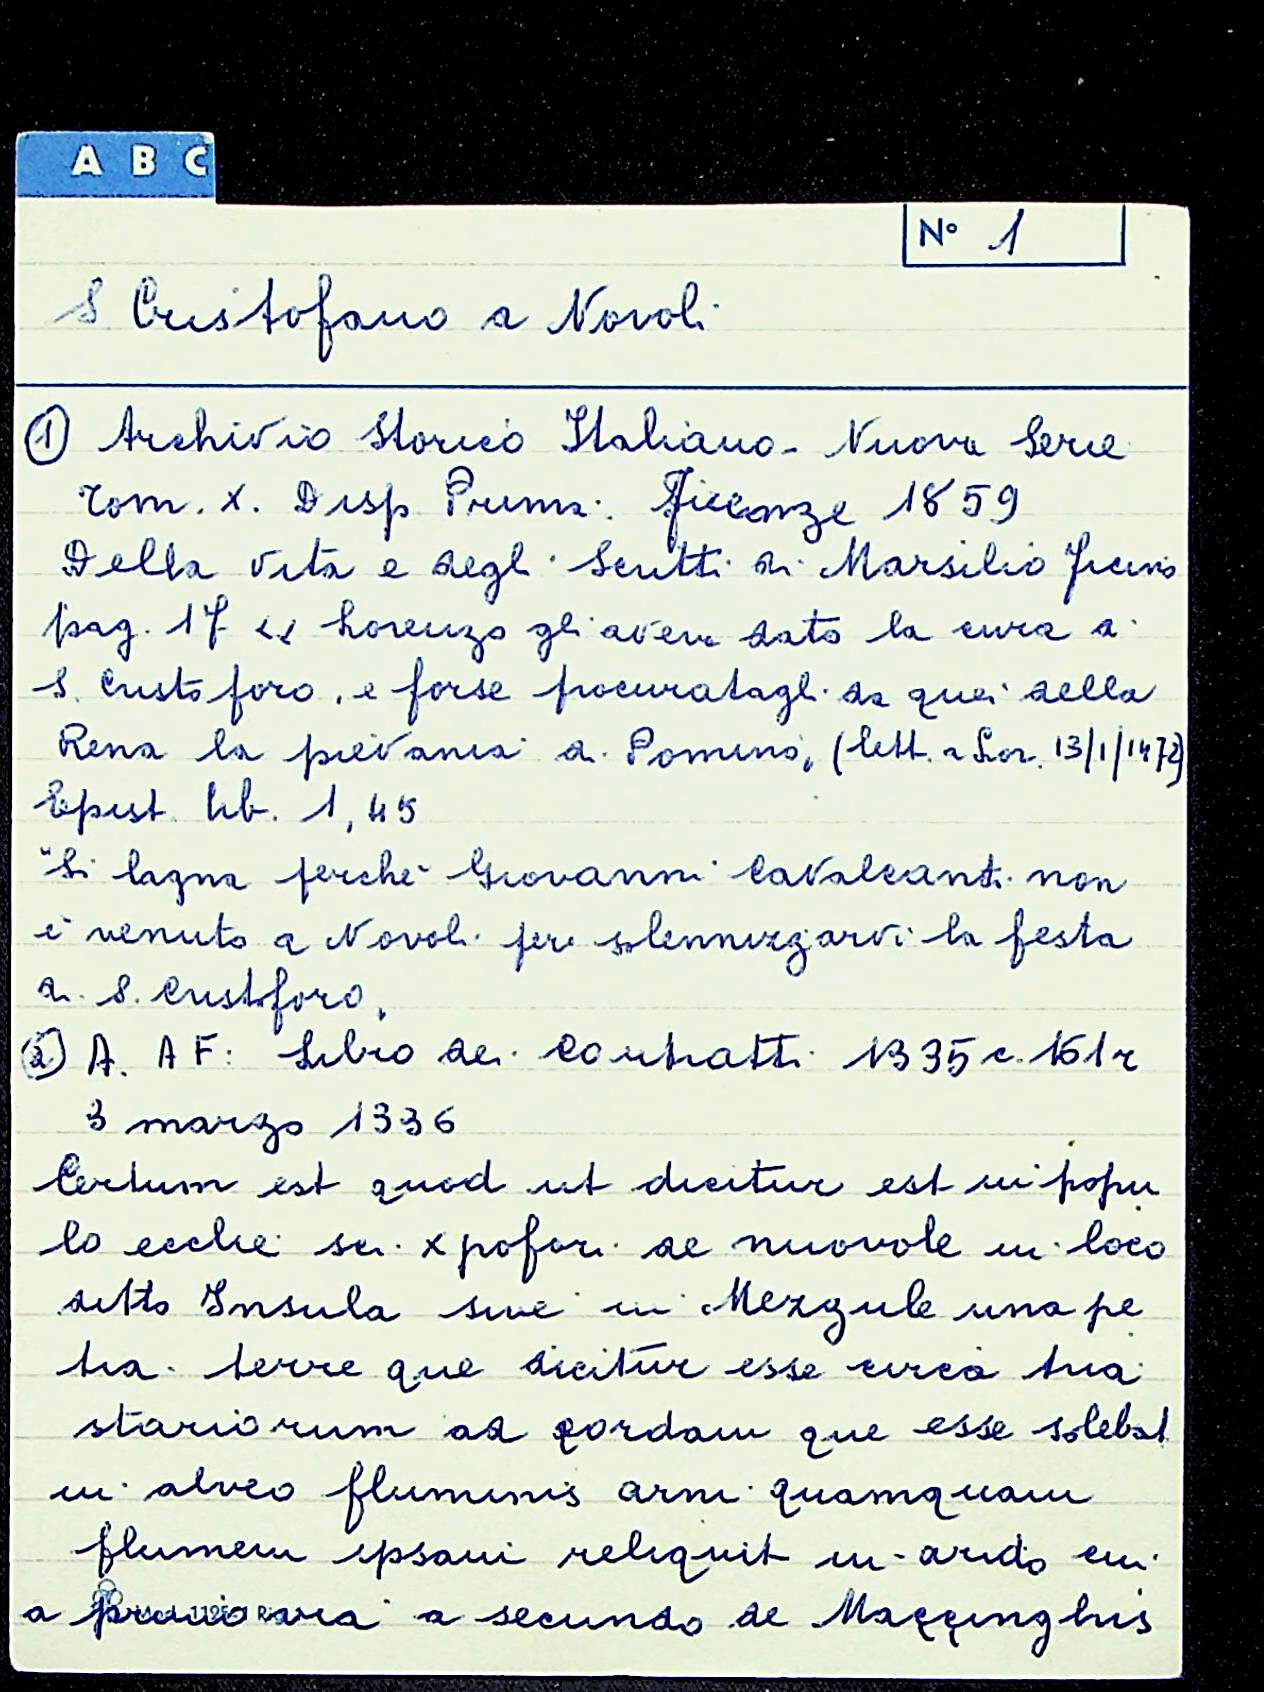 A B C
N° 1
S Cristofano a Novoli
① Archivio Storico Italiano - Nuova Serie
Tom. X. Disp Prima. Firenze 1859
Della vita e degli Scritti di Marsilio Ficino
pag. 17 << Lorenzo gli aveva dato la cura di
S. Cristoforo, e forse procuratagli da quei della
Rena la pievania di Pomino, (lett. a Lor. 13/1/1472)
Epist. lib. 1, 45
"Si lagna perché Giovanni Cavalcanti non
è venuto a Novoli per solennizzarvi la festa
di S. Cristoforo.
② A. A F: Libro dei Contratti 1335 c. 161 r
3 marzo 1336
Certum est quod ut dicitur est in popu
lo ecclie sci xpofori de nuovole in loco
ditto Insula sive in Mezzule una pe
tia terre que dicitūr esse circa tria
stariorum ad cordam que esse solebat
in alveo fluminis arni quamquam
flumen ipsam reliquit in arido cui
a primo via a secundo de Mazzinghis